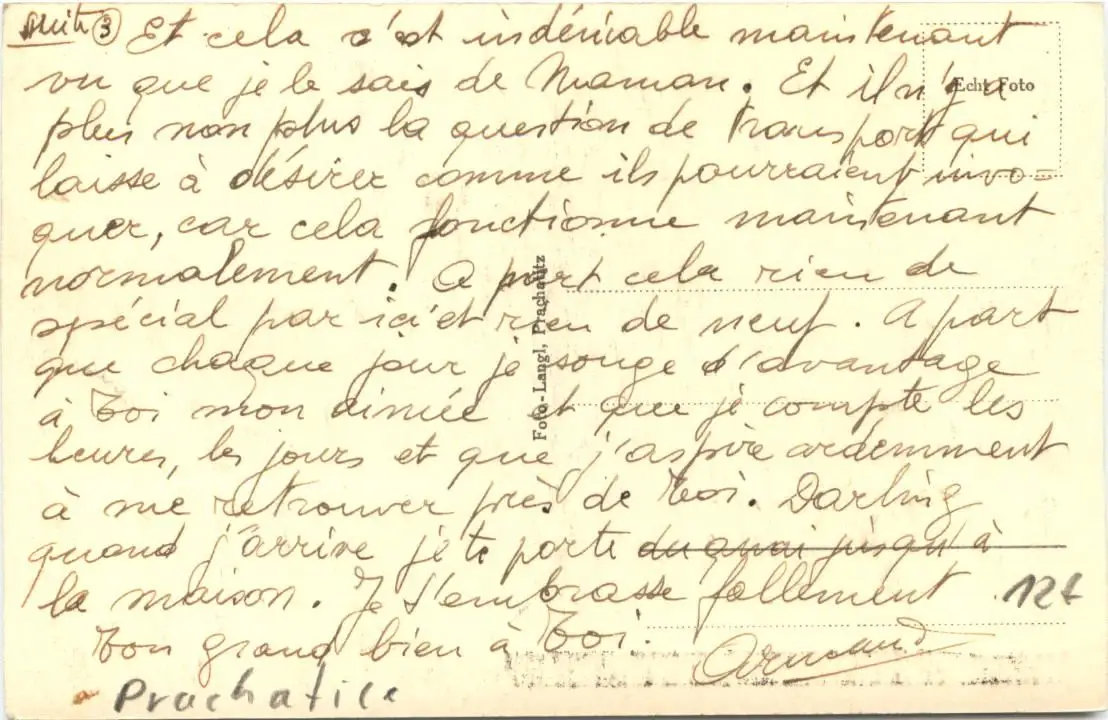 suite ③ Et cela c'est indéniable maintenant
vu que je le sais de Maman. Et il n'y a
plus non plus la question de transport qui
laisse à désirer comme ils pourraient invo-
quer, car cela fonctionne maintenant
normalement. A part cela rien de
spécial par ici et rien de neuf. A part
que chaque jour je songe d'avantage
à toi mon aimée et que je compte les
heures, les jours et que j'aspire ardemment
à me retrouver près de toi. Darling
quand j'arrive je te porte du quai jusqu'à
la maison. Je t'embrasse follement
Ton grand bien à Toi.
Armand
12t
Prachatice
Echt Foto
Foto-Langl, Prachatitz